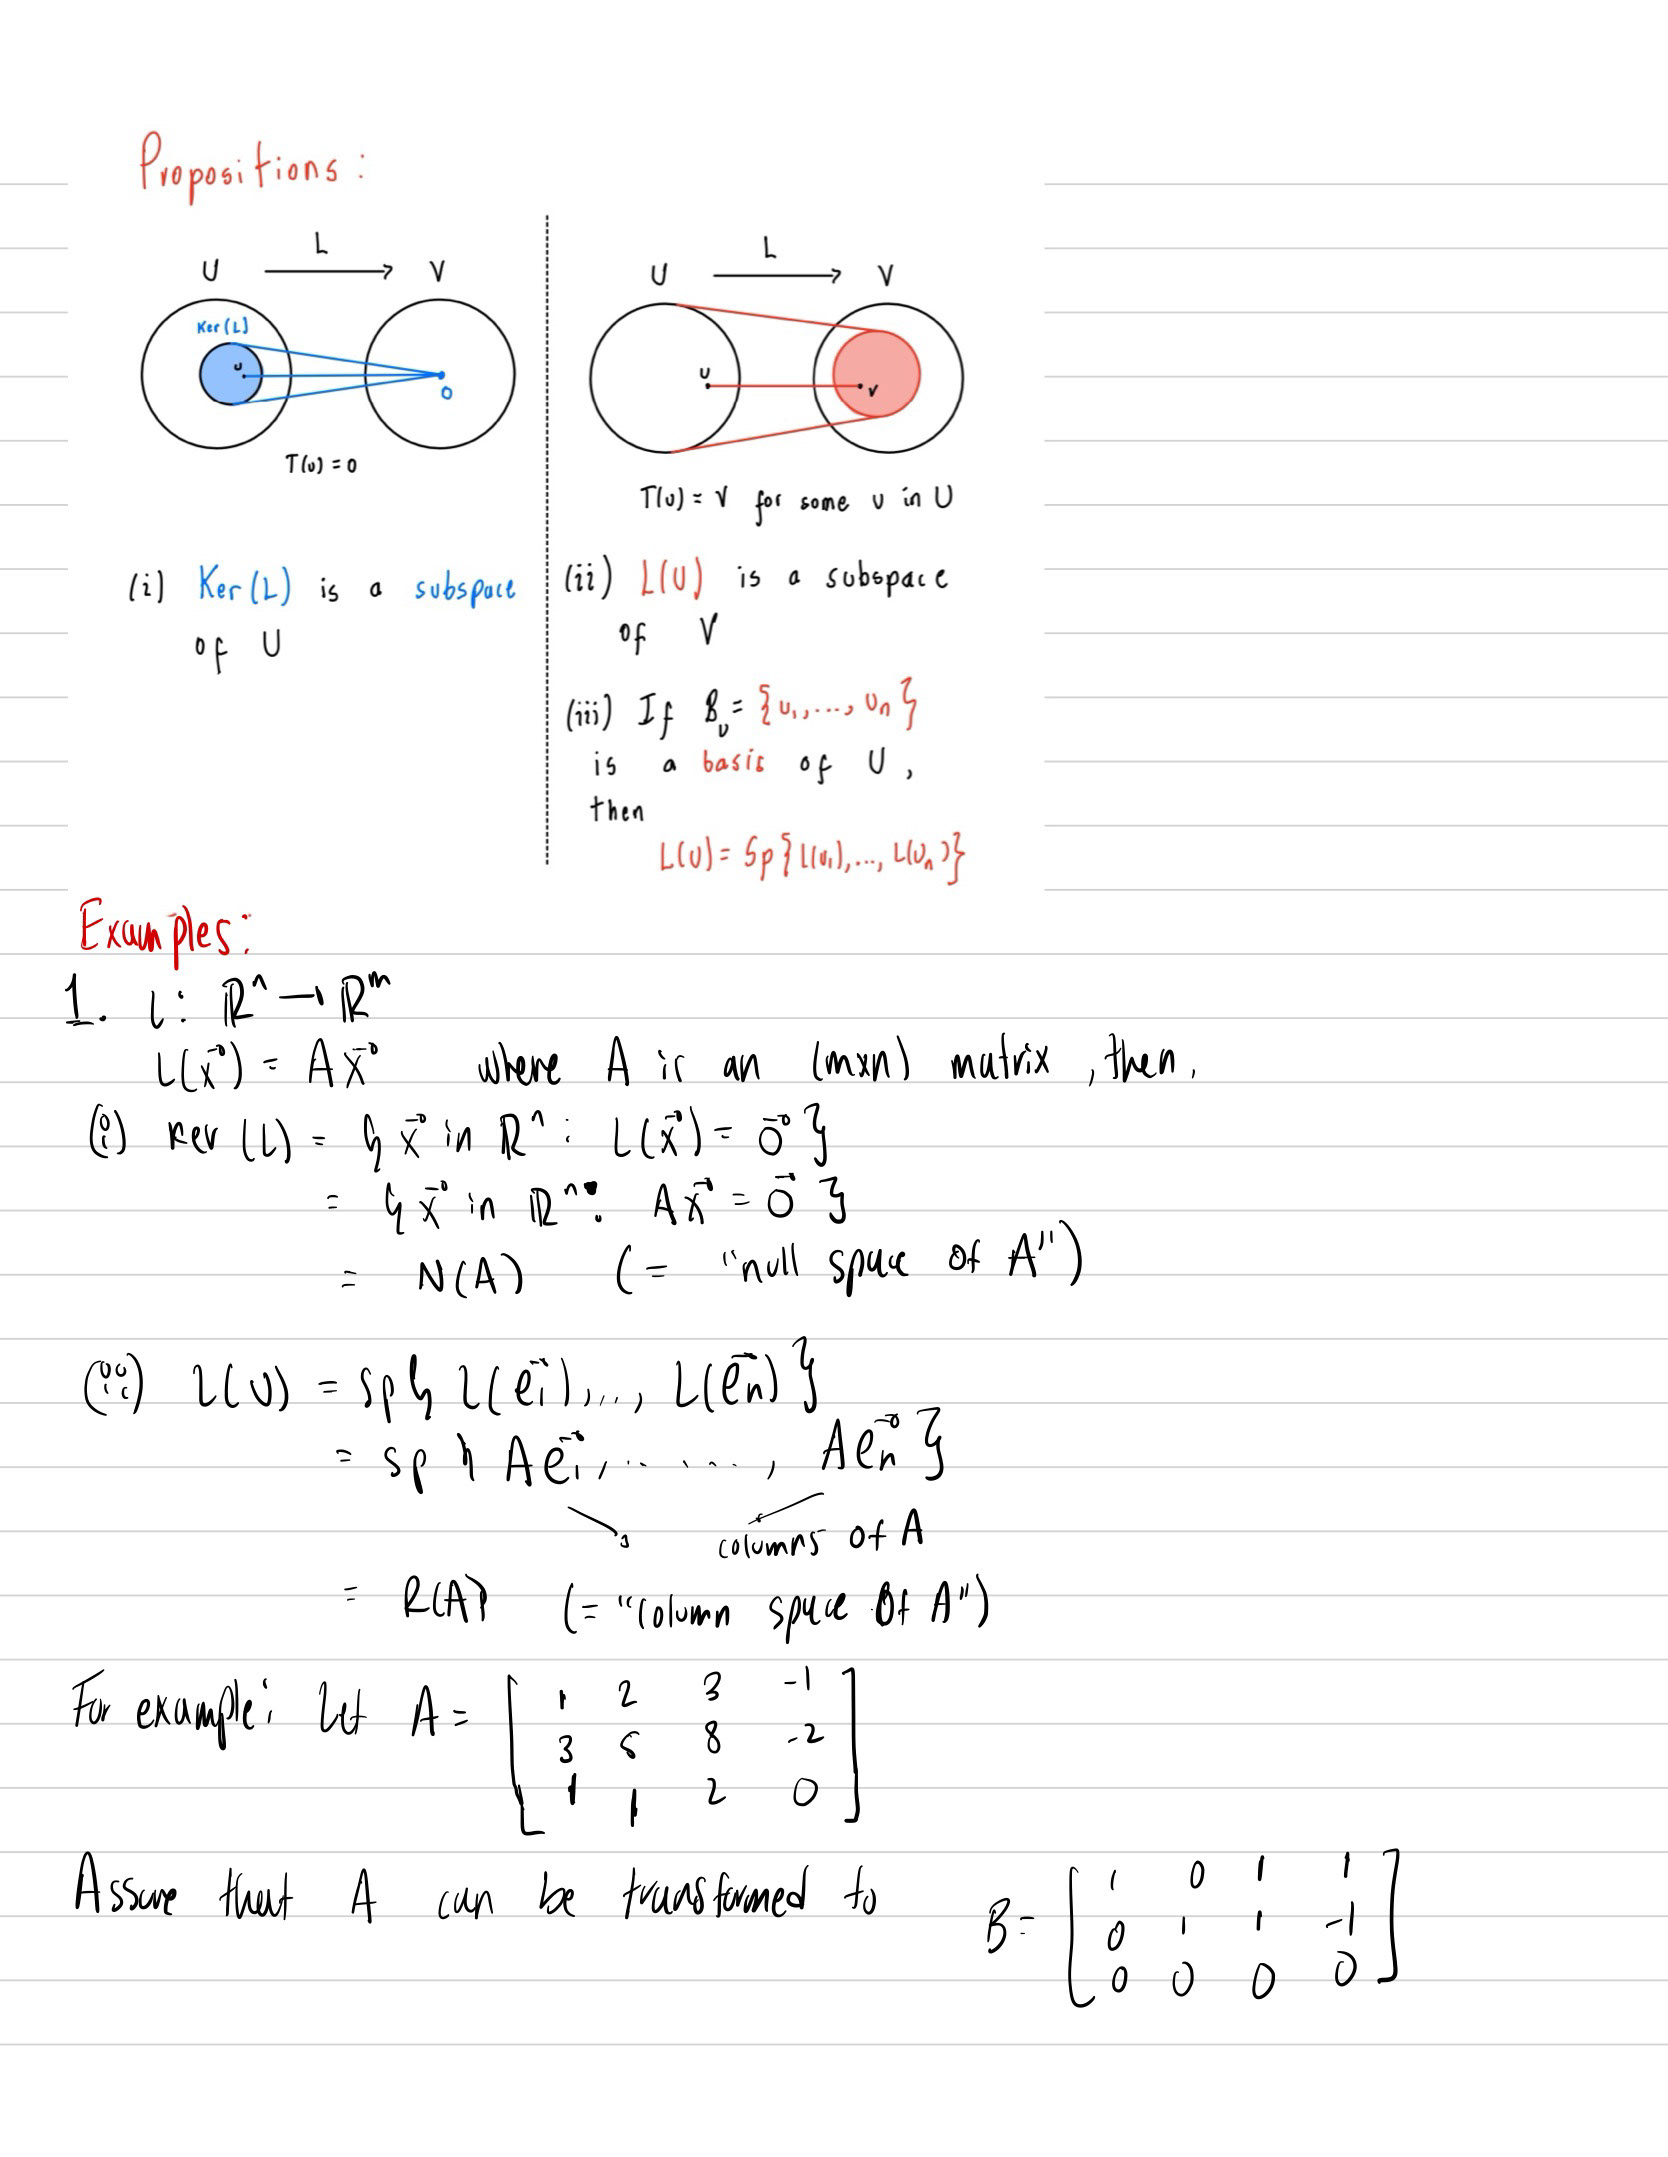 Propositions:
U L V
Ker(L)
u
0
T(u) = 0
(i) Ker(L) is a subspace
of U
U L V
u v
T(u) = v for some u in U
(ii) L(U) is a subspace
of V
(iii) If B_U = {u₁,..., uₙ}
is a basis of U,
then
L(U) = Sp{L(u₁),..., L(uₙ)}
Examples:
1. L: ℝⁿ → ℝᵐ
L(x⃗) = Ax⃗ where A is an (m×n) matrix, then,
(i) Ker(L) = {x⃗ in ℝⁿ: L(x⃗) = 0⃗}
= {x⃗ in ℝⁿ: Ax⃗ = 0⃗}
= N(A) (= "null space of A")
(ii) L(U) = sp{L(e⃗₁),..., L(e⃗ₙ)}
= sp{Ae⃗₁, ......, Ae⃗ₙ}
columns of A
= R(A) (= "column space of A")
For example: Let A = [ 1 2 3 -1
3 5 8 -2
1 1 2 0 ]
Assume that A can be transformed to B = [ 1 0 1 1
0 1 1 -1
0 0 0 0 ]